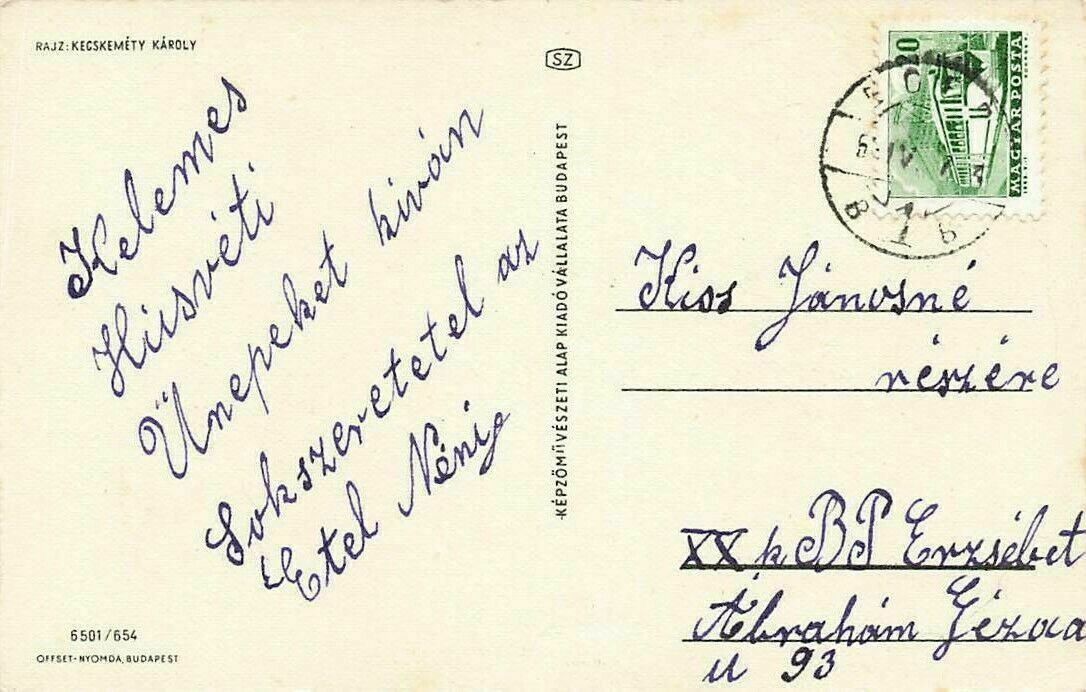 RAJZ: KECSKEMÉTY KÁROLY
SZ
MAGYAR POSTA
Kelemes
Húsvéti
Ünepeket kíván
Sokszeretetel az
Etel Néni
KÉPZŐMŰVÉSZETI ALAP KIADÓVÁLLALATA BUDAPEST
Kiss Jánosné
részére
XX k BP Erzsébet
Ábrahám Géza
u 93
6501/654
OFFSET-NYOMDA, BUDAPEST